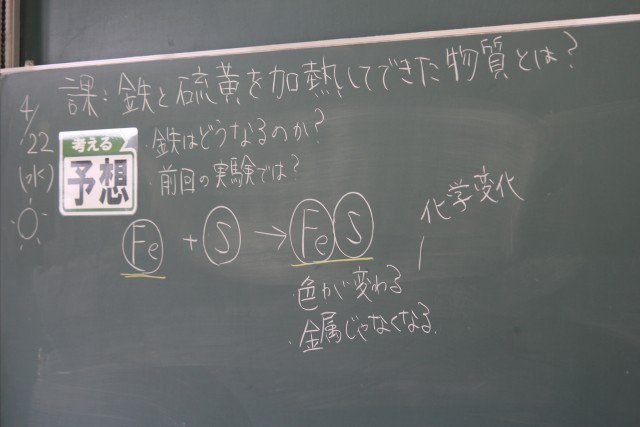 課：鉄と硫黄を加熱してできた物質とは？
4/22
(水)
考える
予想
・鉄はどうなるのか？
・前回の実験では？
Fe + S → FeS
化学変化
・色が変わる
・金属じゃなくなる。